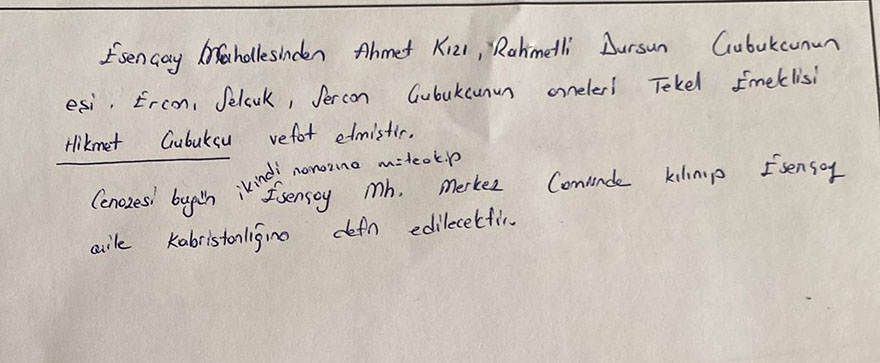 Esençay Mahallesinden Ahmet Kızı, Rahmetli Dursun Çubukcunun
eşi. Ercan, Selçuk, Sercan Çubukcunun anneleri Tekel Emeklisi
Hikmet Çubukçu vefat etmiştir.
ikindi namazına müteakip
Cenazesi bugün Esençay Mh. Merkez Camiinde kılınıp Esençay
aile Kabristanlığına defn edilecektir.